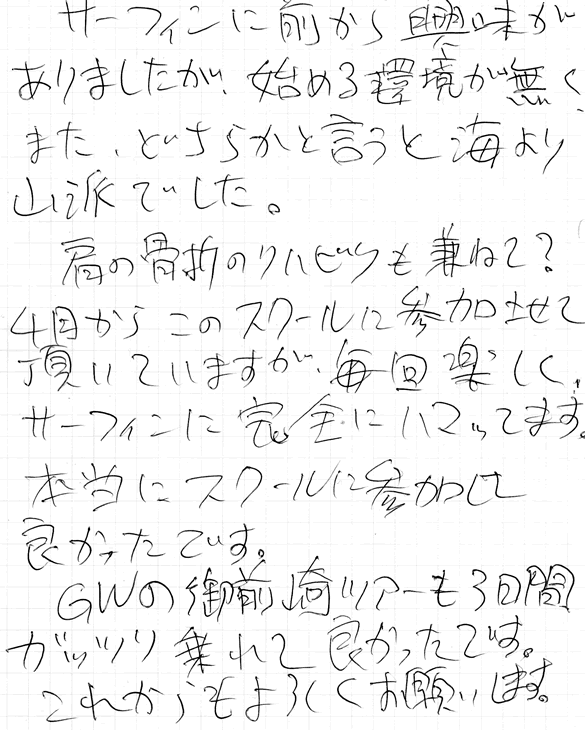 サーフィンに前から興味が
ありましたが、始める環境が無く
また、どちらかと言うと海より
山派でした。
肩の骨折のリハビリも兼ねて?
4月からこのスクールに参加させて
頂いていますが、毎回楽しく、
サーフィンに完全にハマってます。
本当にスクールに参加して
良かったです。
GWの御前崎ツアーも3日間
ガッツリ乗れて良かったです。
これからもよろしくお願いします。